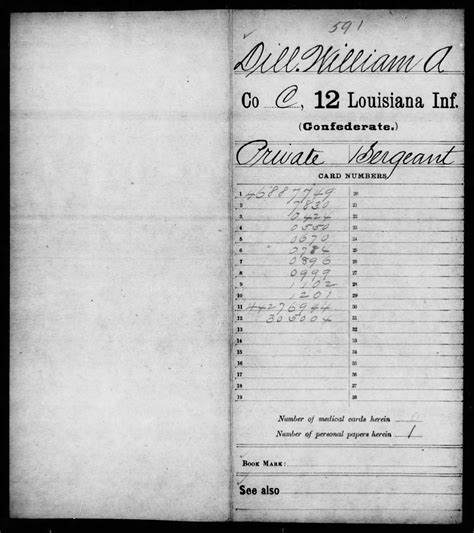 591
Dill, William A
Co C, 12 Louisiana Inf.
(Confederate.)
Private Sergeant
CARD NUMBERS
1 46887749 20
2 7830 21
3 0424 22
4 0550 23
5 0670 24
6 0784 25
7 0896 26
8 0999 27
9 1102 28
10 1201 29
11 44276944 30
12 305004 31
13 32
14 33
15 34
16 35
17 36
18 37
19 38
Number of medical cards herein 0
Number of personal papers herein 1
BOOK MARK:
See also